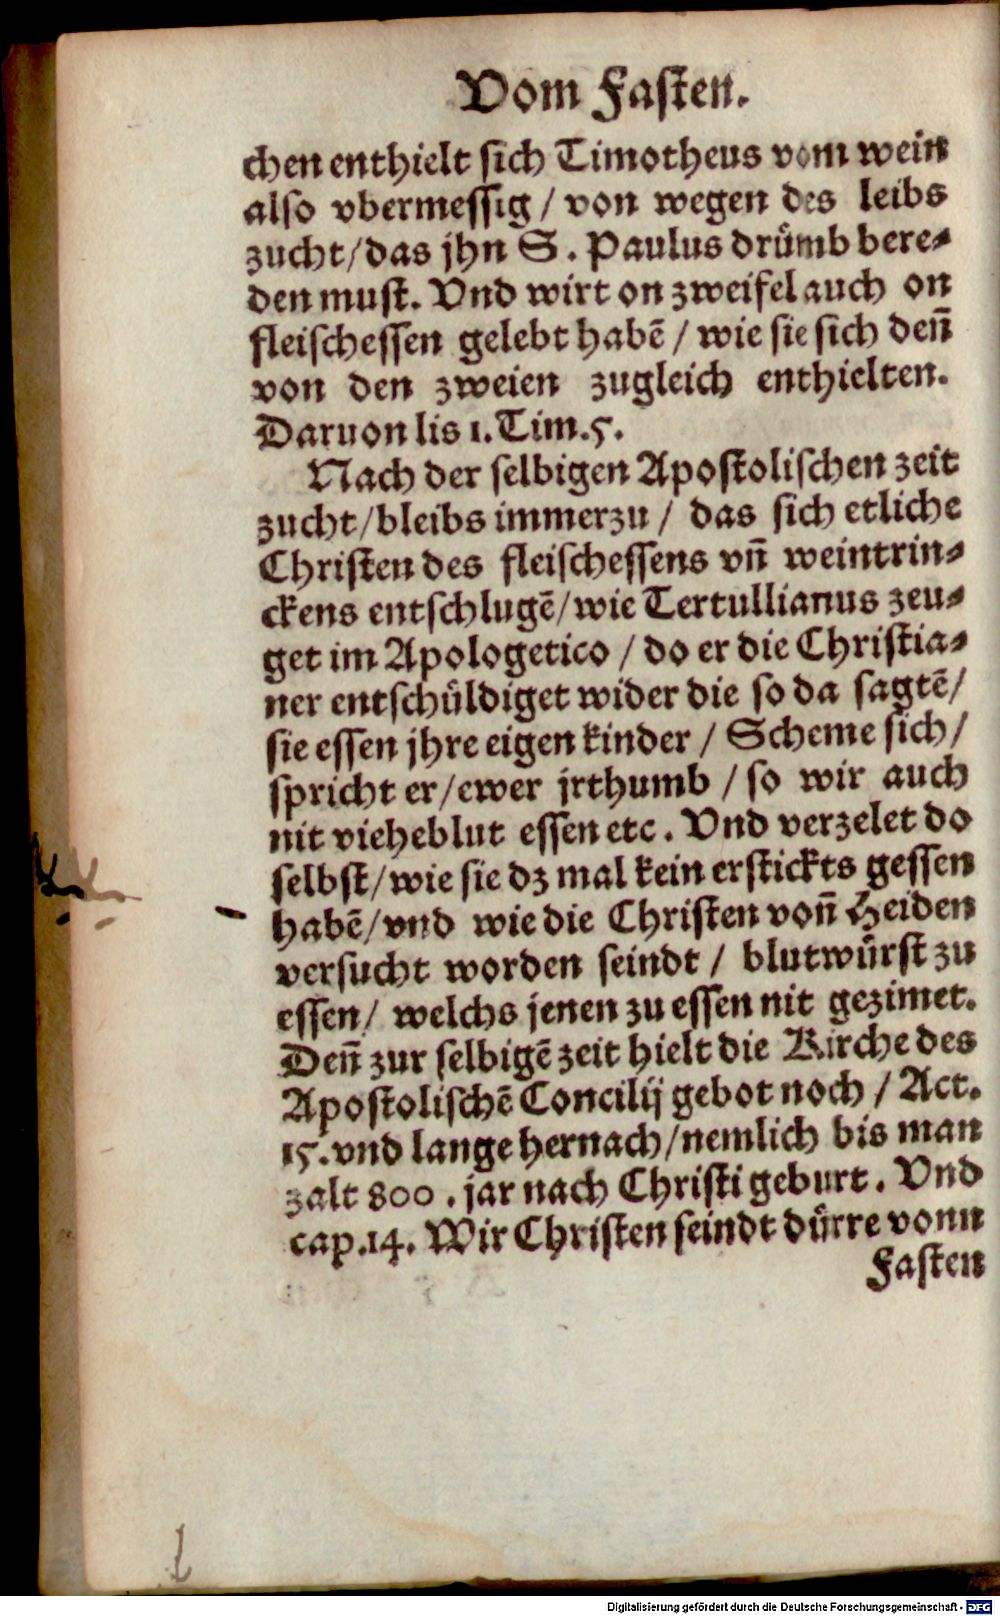 Vom Fasten.
chen enthielt sich Timotheus vom wein
also vbermessig / von wegen des leibs
zucht/das jhn S. Paulus drümb bere⸗
den must. Vnd wirt on zweifel auch on
fleischessen gelebt habē / wie sie sich den̄
von den zweien zugleich enthielten.
Daruon lis 1. Tim. 5.
Nach der selbigen Apostolischen zeit
zucht/bleibs immerzu / das sich etliche
Christen des fleischessens vn̄ weintrin⸗
ckens entschlugē/wie Tertullianus zeu⸗
get im Apologetico / do er die Christia⸗
ner entschüldiget wider die so da sagtē/
sie essen jhre eigen kinder / Scheme sich/
spricht er/ewer jrthumb / so wir auch
nit vieheblut essen etc. Vnd verzelet do
selbst/wie sie dz mal kein erstickts gessen
habē/vnd wie die Christen von̄ Heiden
versucht worden seindt / blutwürst zu
essen/ welchs jenen zu essen nit gezimet.
Den̄ zur selbigē zeit hielt die Kirche des
Apostolischē Concilij gebot noch / Act.
15. vnd lange hernach/nemlich bis man
zalt 800. jar nach Christi geburt. Vnd
cap. 14. Wir Christen seindt dürre vonn
Fasten
Digitalisierung gefördert durch die Deutsche Forschungsgemeinschaft - DFG